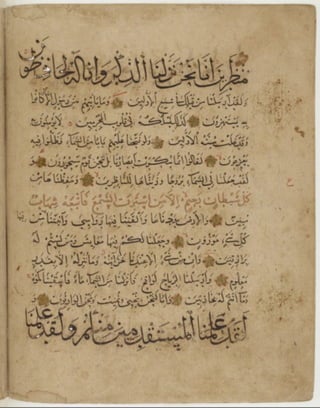 منظرين انا نحن نزلنا الذكر وانا له لحافظون
ولقد ارسلنا من قبلك في شيع الاولين وما ياتيهم من رسول الا كانوا
به يستهزؤن كذلك نسلكه في قلوب المجرمين لا يؤمنون به
وقد خلت سنة الاولين ولو فتحنا عليهم بابا من السماء فظلوا فيه
يعرجون لقالوا انما سكرت ابصارنا بل نحن قوم مسحورون و
لقد جعلنا في السماء بروجا وزيناها للناظرين وحفظناها من
كل شيطان رجيم الا من استرق السمع فاتبعه شهاب
مبين والارض مددناها والقينا فيها رواسي وانبتنا فيها من
كل شيء موزون وجعلنا لكم فيها معايش ومن لستم له
برازقين وان من شيء الا عندنا خزائنه وما ننزله الا بقدر
معلوم وارسلنا الرياح لواقح فانزلنا من السماء ماء فاسقيناكموه
وما انتم له بخازنين وانا لنحن نحيي ونميت ونحن الوارثون و
لقد علمنا المستقدمين منكم ولقد علمنا